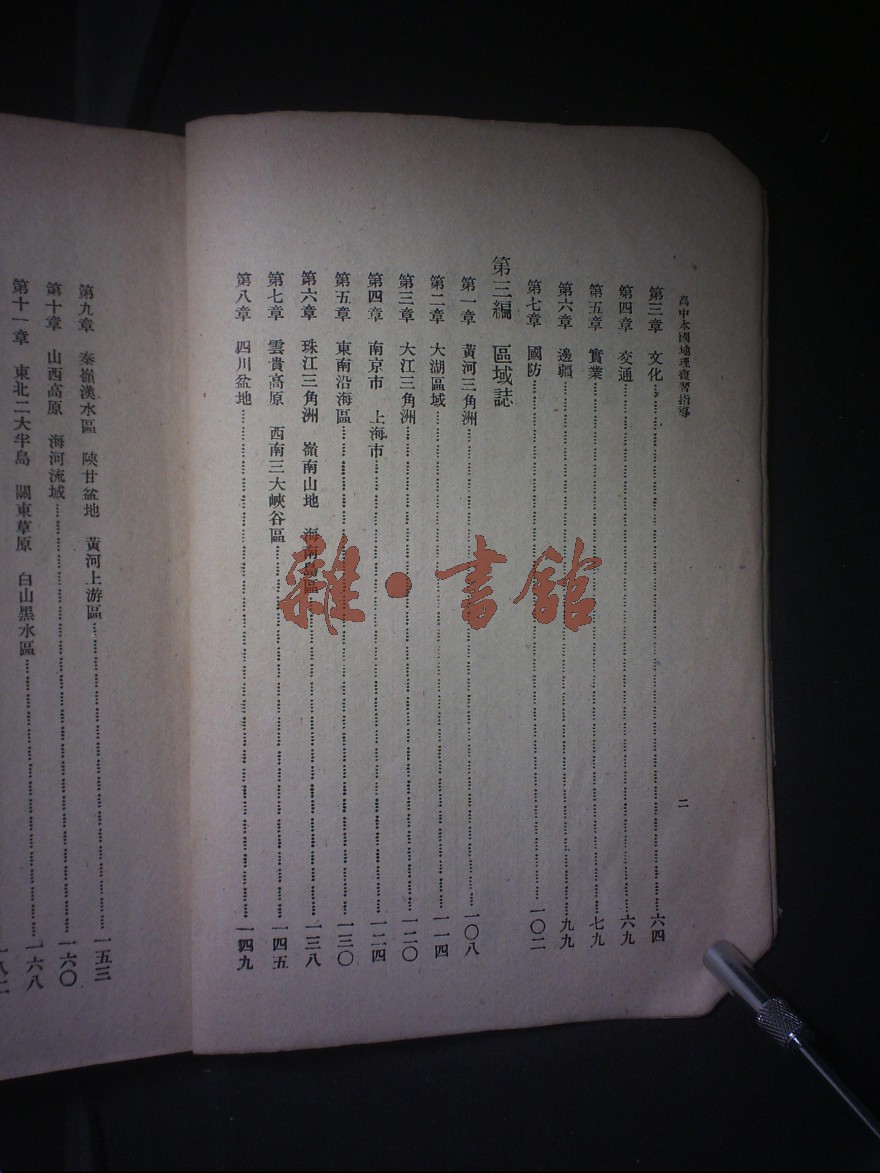 高中本國地理複習指導
二
第三章 文化 六四
第四章 交通 六九
第五章 實業 七九
第六章 邊疆 九九
第七章 國防 一〇二
第三編 區域誌
第一章 黃河三角洲 一〇八
第二章 大湖區域 一一四
第三章 大江三角洲 一二〇
第四章 南京市 上海市 一二四
第五章 東南沿海區 一三〇
第六章 珠江三角洲 嶺南山地 海南島區 一三八
第七章 雲貴高原 西南三大峽谷區 一四五
第八章 四川盆地 一四九
第九章 秦嶺漢水區 陝甘盆地 黃河上游區 一五三
第十章 山西高原 海河流域 一六〇
第十一章 東北二大半島 關東草原 白山黑水區 一六八
雜·書館